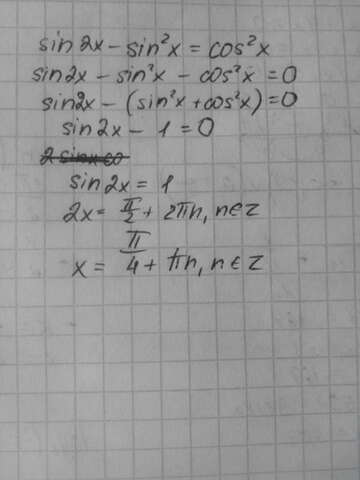 sin2x - sin²x = cos²x
sin2x - sin²x - cos²x = 0
sin2x - (sin²x + cos²x) = 0
sin2x - 1 = 0
sin2x = 1
2x = π/2 + 2πn, n∈Z
x = π/4 + πn, n∈Z